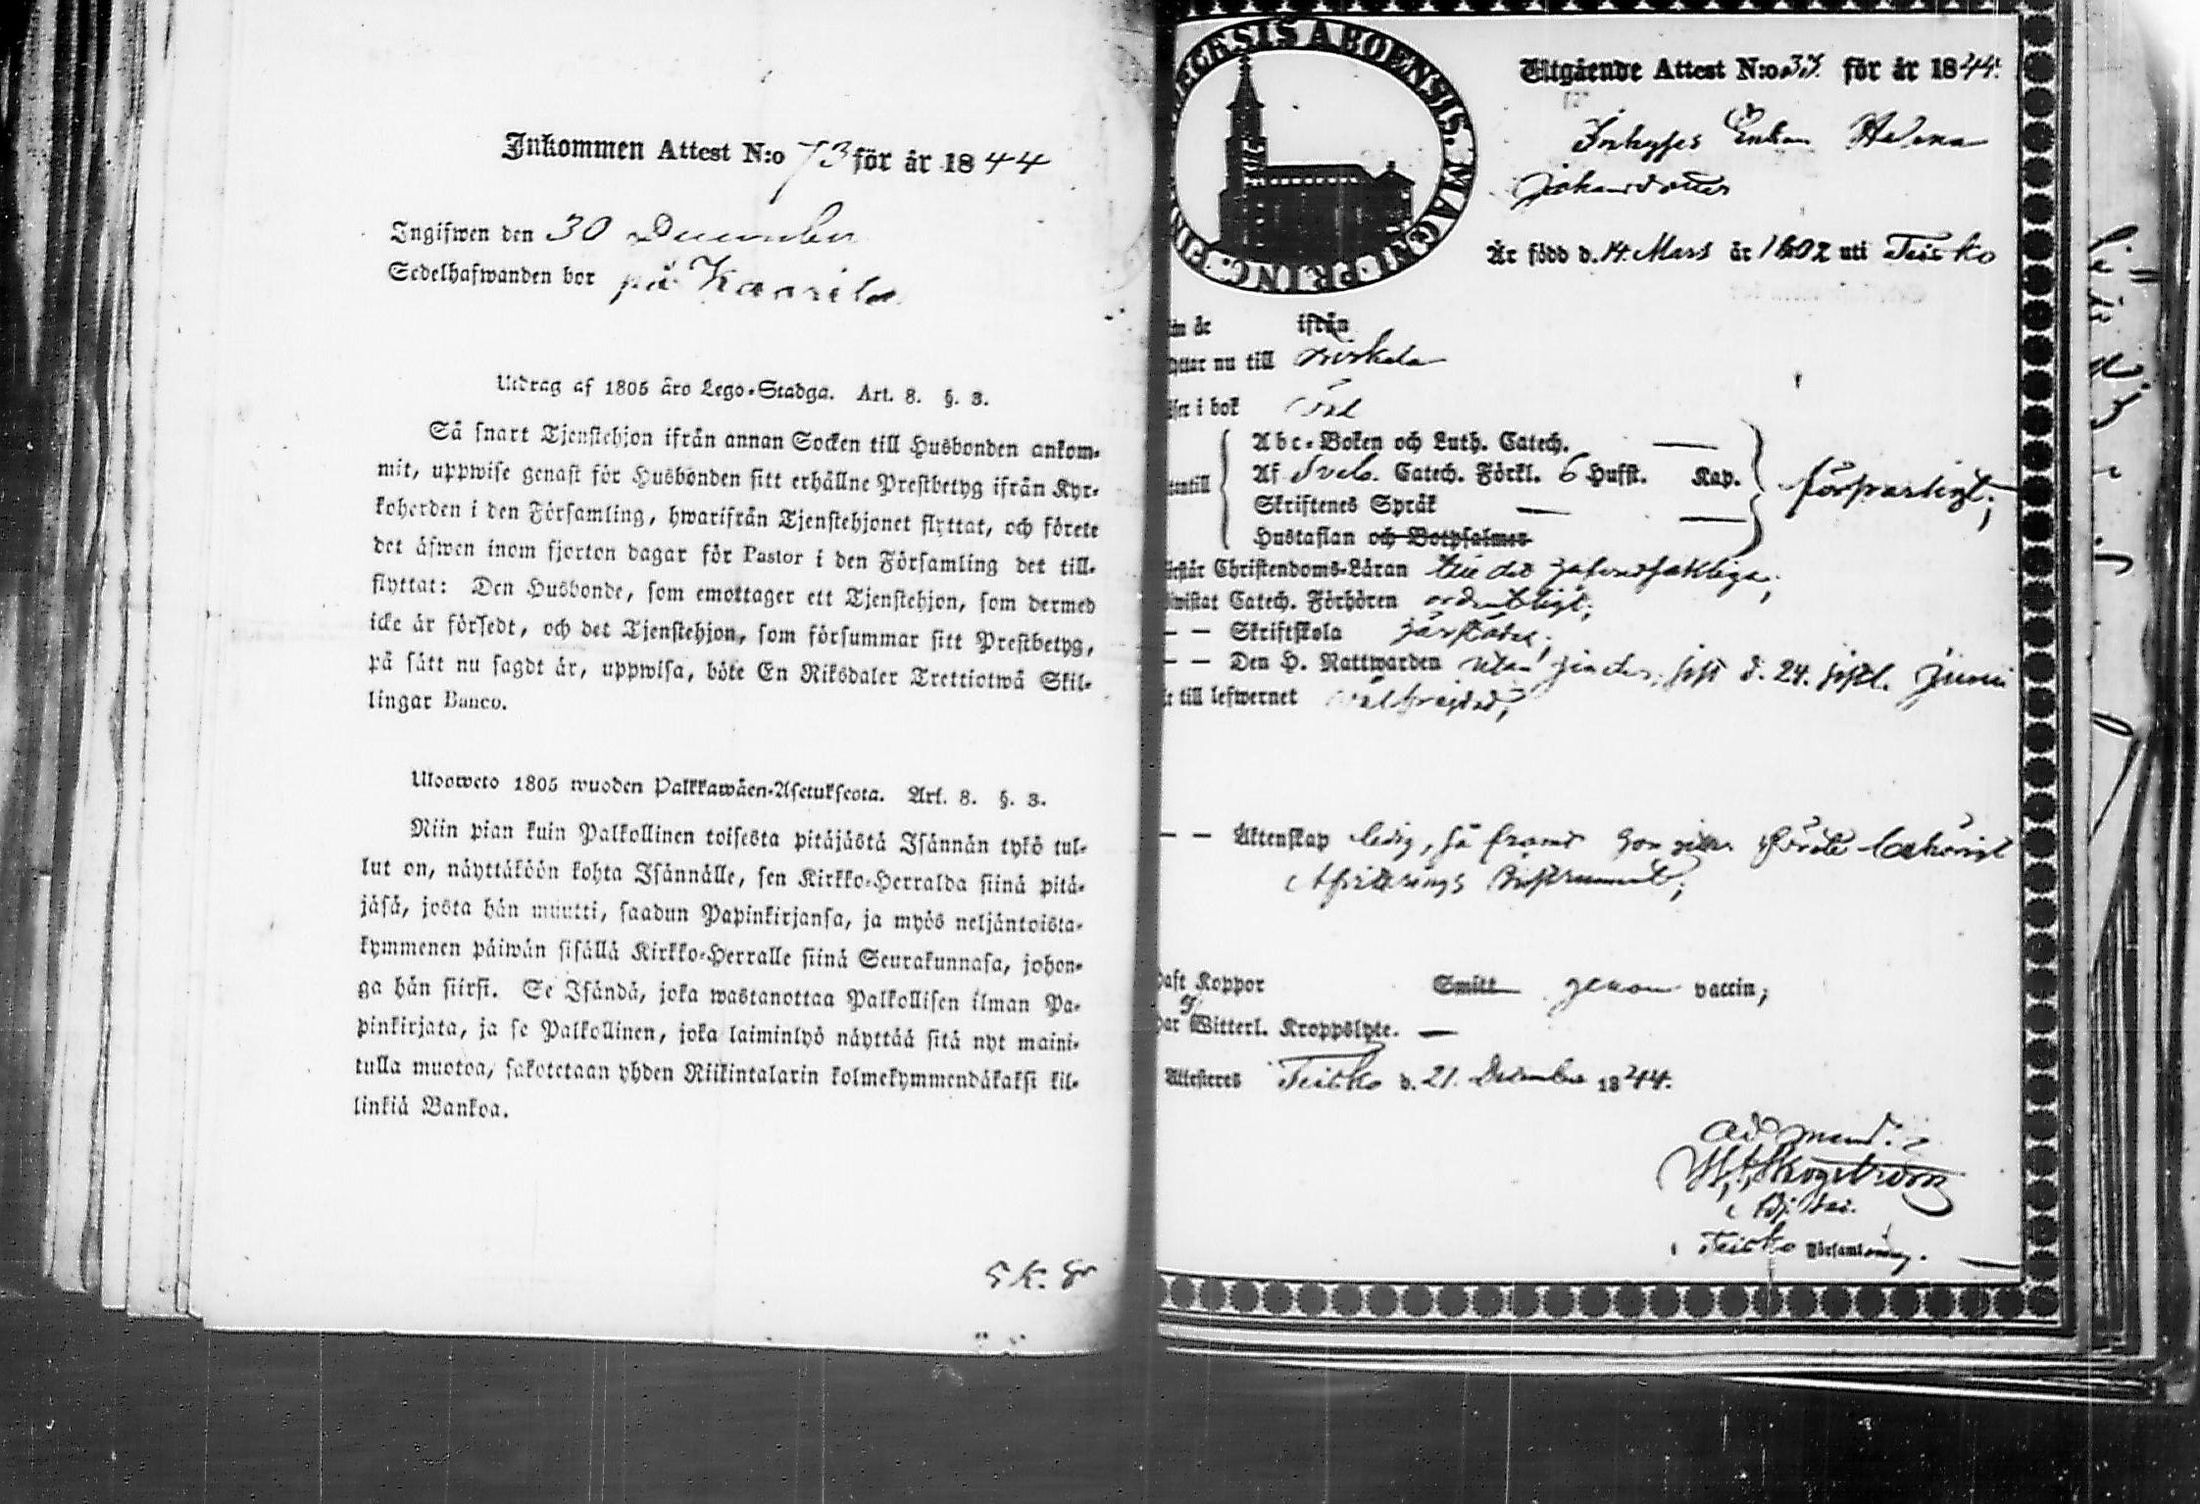 Inkommen Attest N:o 73 för år 1844
Ingifwen den 30 December
Sedelhafwanden bor på Kaarila
Utdrag af 1805 åro Lego-Stadga. Art. 8. §. 3.
Så snart Tjenstehjon ifrån annan Socken till Husbonden ankom-
mit, uppwise genast för Husbonden sitt erhållne Prestbetyg ifrån Kyr-
koherden i den Församling, hwarifrån Tjenstehjonet flyttat, och förete
det äfwen inom fjorton dagar för Pastor i den Församling det till-
flyttat: Den Husbonde, som emottager ett Tjenstehjon, som dermed
icke är försedt, och det Tjenstehjon, som försummar sitt Prestbetyg,
på sått nu sagdt är, uppwisa, böte En Riksdaler Trettiotwå Skil-
lingar Banco.
Uloosweto 1805 wuoden Palkkawäen-Asetuksesta. Art. 8. §. 3.
Niin pian kuin Palkollinen toisesta pitäjästä Isännän tykö tul-
lut on, näyttäköön kohta Isännälle, sen Kirkko-Herralda siinä pitä-
jäsä, josta hän muutti, saadun Papinkirjansa, ja myös neljäntoista-
kymmenen päiwän sisällä Kirkko-Herralle siinä Seurakunnasa, johon-
ga hän siirsi. Se Isändä, joka wastanottaa Palkollisen ilman Pa-
pinkirjata, ja se Palkollinen, joka laiminlyö näyttää sitä nyt maini-
tulla muotoa, sakotetaan yhden Riikintalarin kolmekymmendäkaksi kil-
linkiä Bankoa.
5 K. Sr
ECESIS ABOENSIS. MAGNI PRINC. FIN
Utgående Attest N:o 33. för år 1844.
Inhyses Enkan Helena
Johansdotter
Är född d. 14. Mars år 1802 uti Teisko
år ifrån
nu till Birkala
i bok
Abc-Boken och Luth. Catech. —
Af Sveb. Catech. Förkl. 6 Hufst. Kap.
Skriftenes Språk — —
Hustaflan och Botpsalmer
försvarligt;
Christendoms-Läran
Catech. Förhören ordentligt;
— — Skriftskola
— — Den H. Nattwarden utan hinder, sist d. 24. sistl. Junii
till lefwernet välfrejdad;
— — Äktenskap ledig, så framt hon
Afvittrings Instrument;
Koppor Smitt genom vaccin;
Witterl. Kroppslyte. —
Attesteres Teisko d. 21. December 1844.
Ad mand.
Skogström
Teisko Församling.